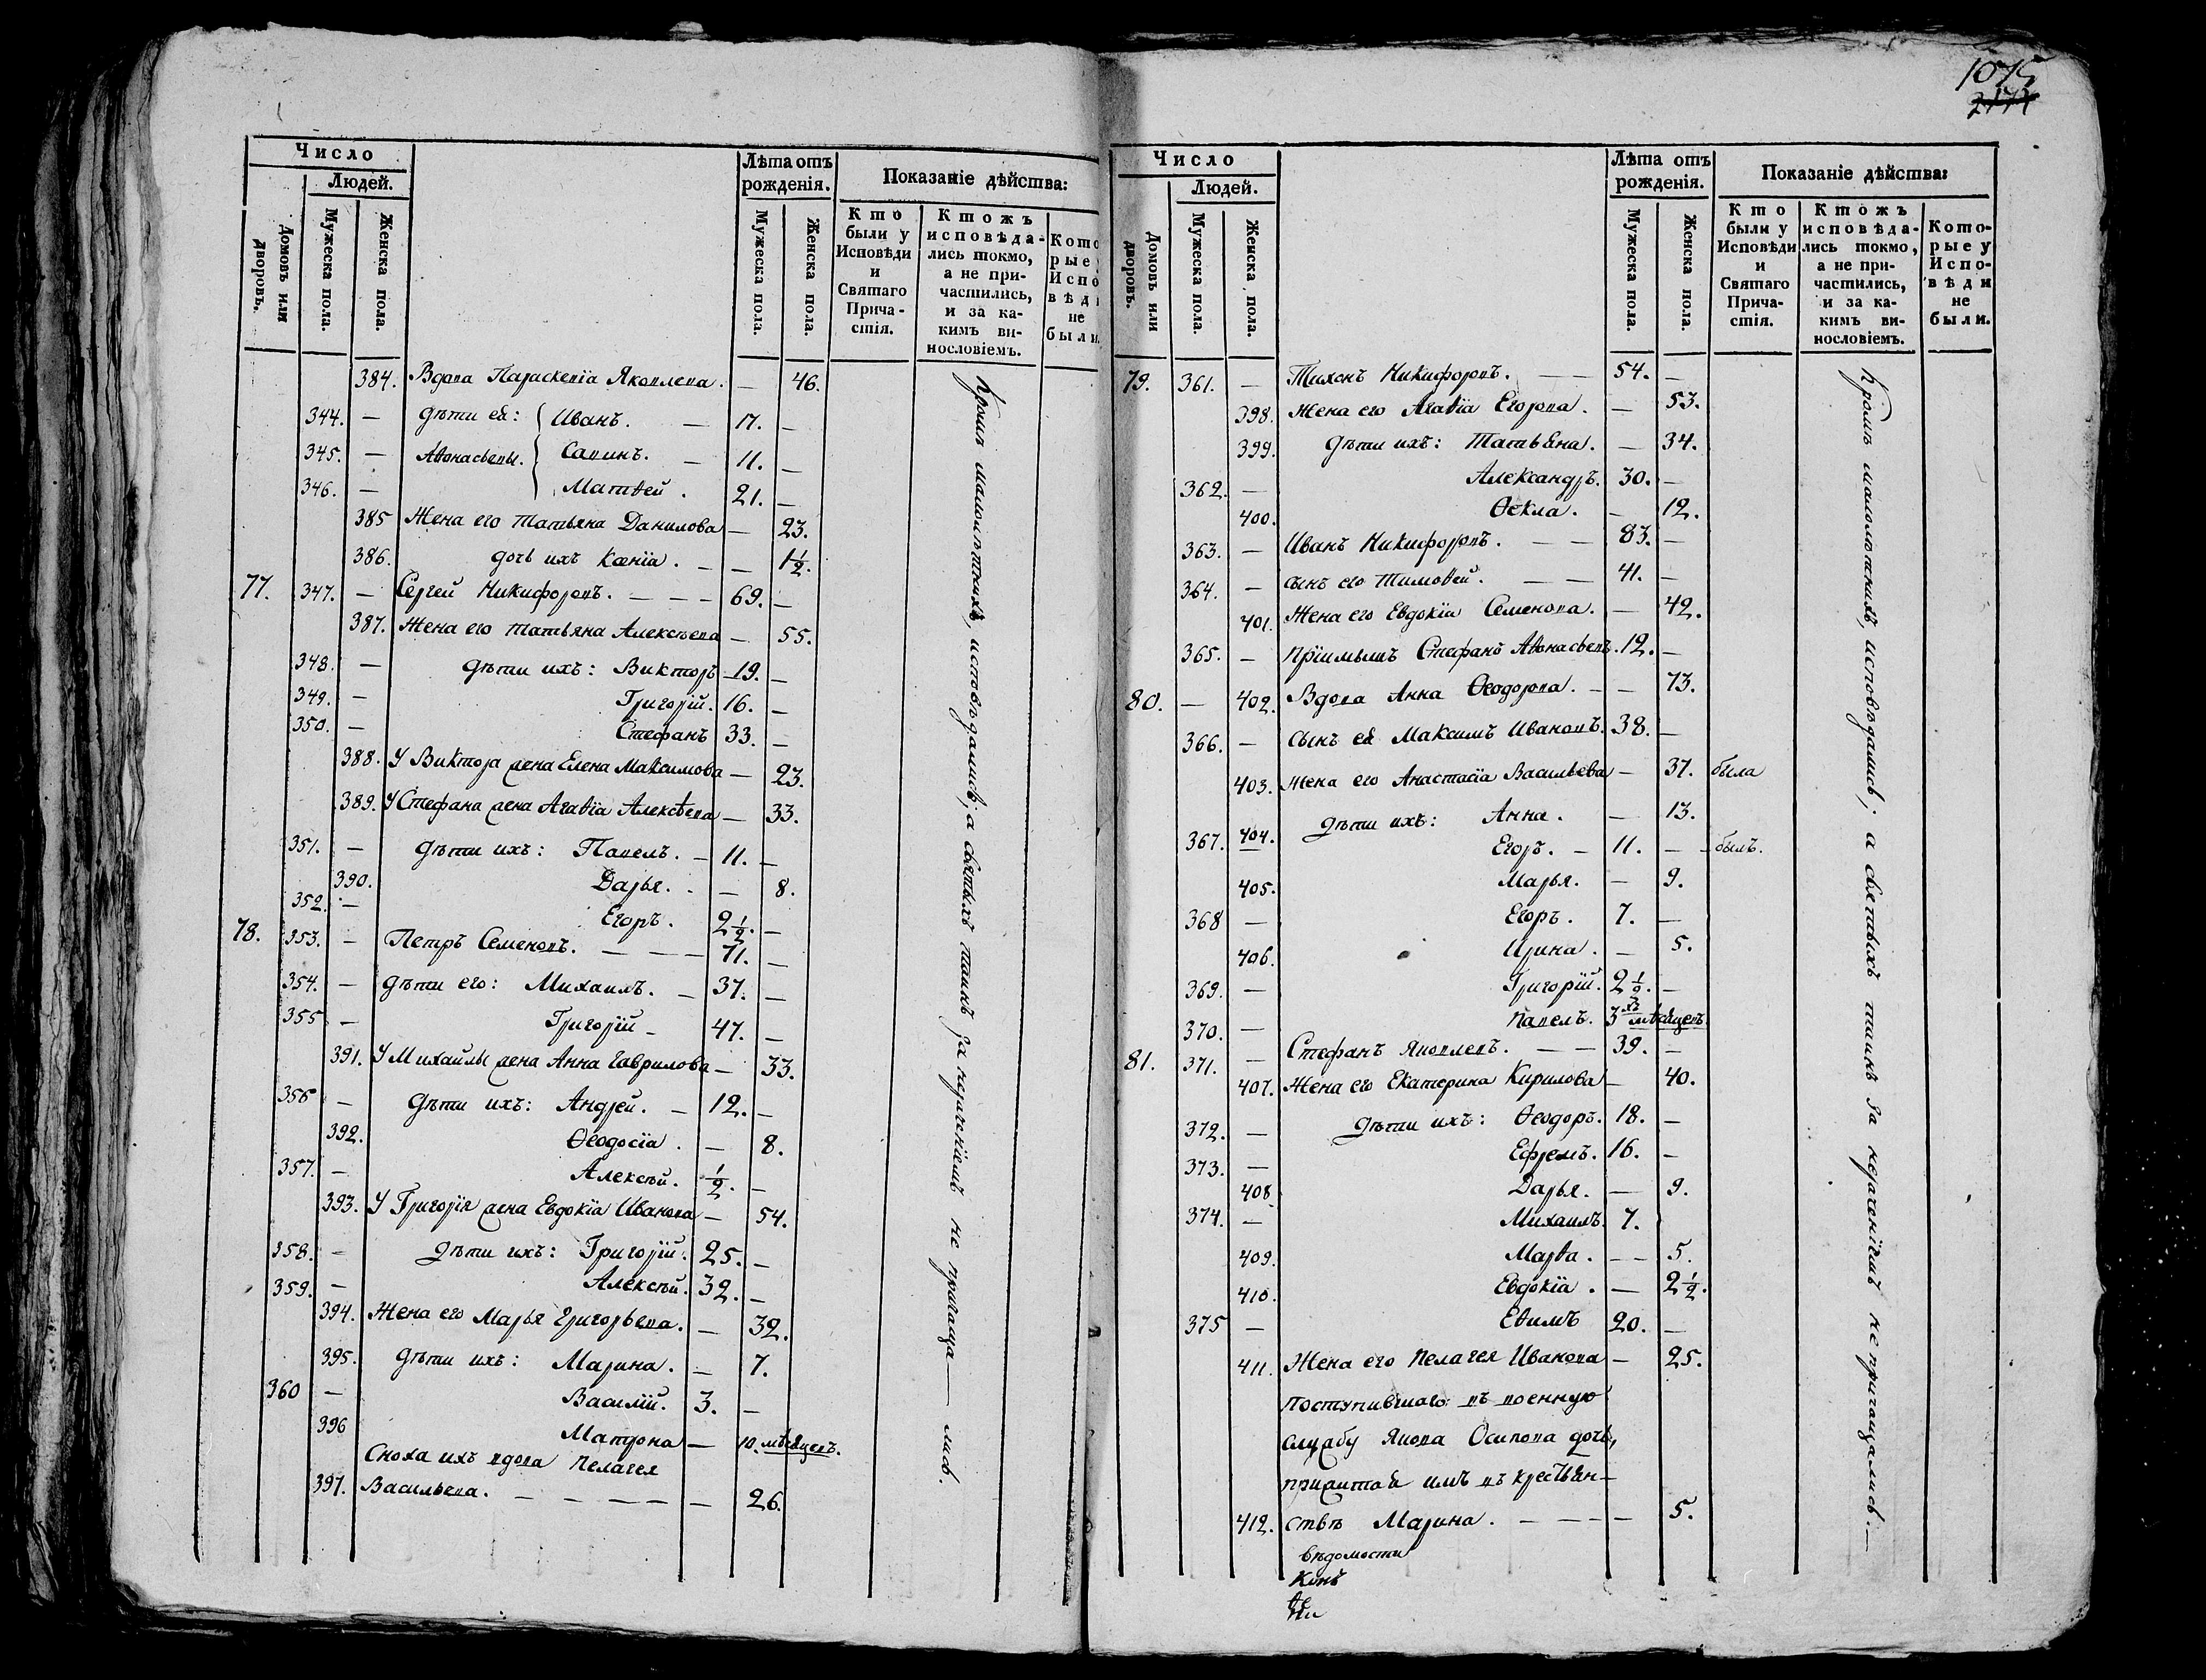 1075
2174
Число
Людей.
Домовъ или дворовъ.
Мужеска пола.
Женска пола.
Лѣта отъ рожденія.
Мужеска пола.
Женска пола.
Показаніе дѣйства:
Кто были у Исповѣди и Святаго Прича-стія.
Ктожъ исповѣда-лись токмо, а не при-частились, и за ка-кимъ ви-нословіемъ.
Кото рые у Испо вѣди не были.
384. Вдова Параскевіа Яковлева. — 46.
344. — дѣти еѧ: Иванъ. — 17. —
345. — Аѳонасьевы. Савинъ. — 11. —
346. — Матѳей. 21. —
385 Жена его Татьяна Данилова — 23.
386. дочь ихъ Ксеніа. — — 1½.
77. 347. — Сергей Никифоровъ. — — — 69. —
387. Жена его Татьяна Алексѣева — 55.
348. — дѣти ихъ: Викторъ — 19. —
349. — Григорій. 16. —
350. — Стефанъ 33. —
388. У Виктора жена Елена Максимова — 23.
389. У Стефана жена Агаѳіа Алексѣева — 33.
351. — дѣти ихъ: Павелъ. — 11. —
390. Дарья. — 8.
352. — Егоръ. 2½. —
78. 353. — Петръ Семеновъ. — — — 71. —
354. — дѣти его: Михаилъ. — 37. —
355 — Григорій — 47. —
391. У Михаилы жена Анна Гаврилова — 33.
356 — дѣти ихъ: Андрей. — 12. —
392. Ѳеодосіа. — 8.
357. — Алексѣй. ½. —
393. У Григоріѧ жена Евдокіа Иванова — 54.
358. — дѣти ихъ: Григорій. 25. —
359. — Алексѣй. 32. —
394. Жена его Марья Григорьева. — 32.
395. дѣти ихъ: Марина. — 7.
360 — Василій. 3. —
396 Матрона — 10. мѣсѧцевъ.
Сноха ихъ вдова Пелагея
397. Васильева. — — — — — 26.
Кромѣ малолѣтнихъ, исповѣдались; а свѧтыхъ таинъ за нераченіемъ не причаща — лись.
Число
Людей.
Домовъ или дворовъ.
Мужеска пола.
Женска пола.
Лѣта отъ рожденія.
Мужеска пола.
Женска пола.
Показаніе дѣйства:
Кто были у Исповѣди и Святаго Прича-стія.
Ктожъ исповѣда-лись токмо, а не при-частились, и за ка-кимъ ви-нословіемъ.
Кото-рые у Испо-вѣди не были.
79. 361. — Тихонъ Никифоровъ. — — 54. —
398. Жена его Агаѳіа Егорова. — 53.
399. дѣти ихъ: Татьѧна. — 34.
362. — Александръ. 30. —
400. Ѳекла. — 12.
363. — Иванъ Никифоровъ. — — 83. —
364. — сынъ его Тимоѳей. — — 41. —
401. Жена его Евдокіа Семенова. — 42.
365. — Пріимышъ Стефанъ Аѳонасьевъ. 12. —
80. — 402. Вдова Анна Ѳеодорова. — — 73.
366. — сынъ еѧ Максимъ Ивановъ. 38. —
403. Жена его Анастасіа Васильева — 37. была
404. дѣти ихъ: Анна. — 13.
367. Егоръ. — 11. — былъ.
405. Марья. — 9.
368 — Егоръ. 7. —
406. Ирина. — 5.
369. — Григорій. 2½. —
370. — Павелъ. 3хъ мѣсѧцевъ.
81. 371. — Стефанъ Яковлевъ. — — 39. —
407. Жена его Екатерина Кирилова — 40.
372. — дѣти ихъ: Ѳеодоръ. 18. —
373. — Ефремъ. 16. —
408 Дарья. — 9.
374. — Михаилъ. 7.
409. Марѳа. — — 5.
410. Евдокіа. — 2½.
375 — Еѳимъ 20. —
411. Жена его Пелагея Иванова — 25.
Поступившаго въ военную
службу Якова Осипова дочь,
прижитаѧ имъ въ крестьѧн-
412. ствѣ Марина. — — — — 5.
вѣдомости
Кромѣ малолѣтнихъ, исповѣдались; а свѧтыхъ таинъ за нераченіемъ не причащались. —